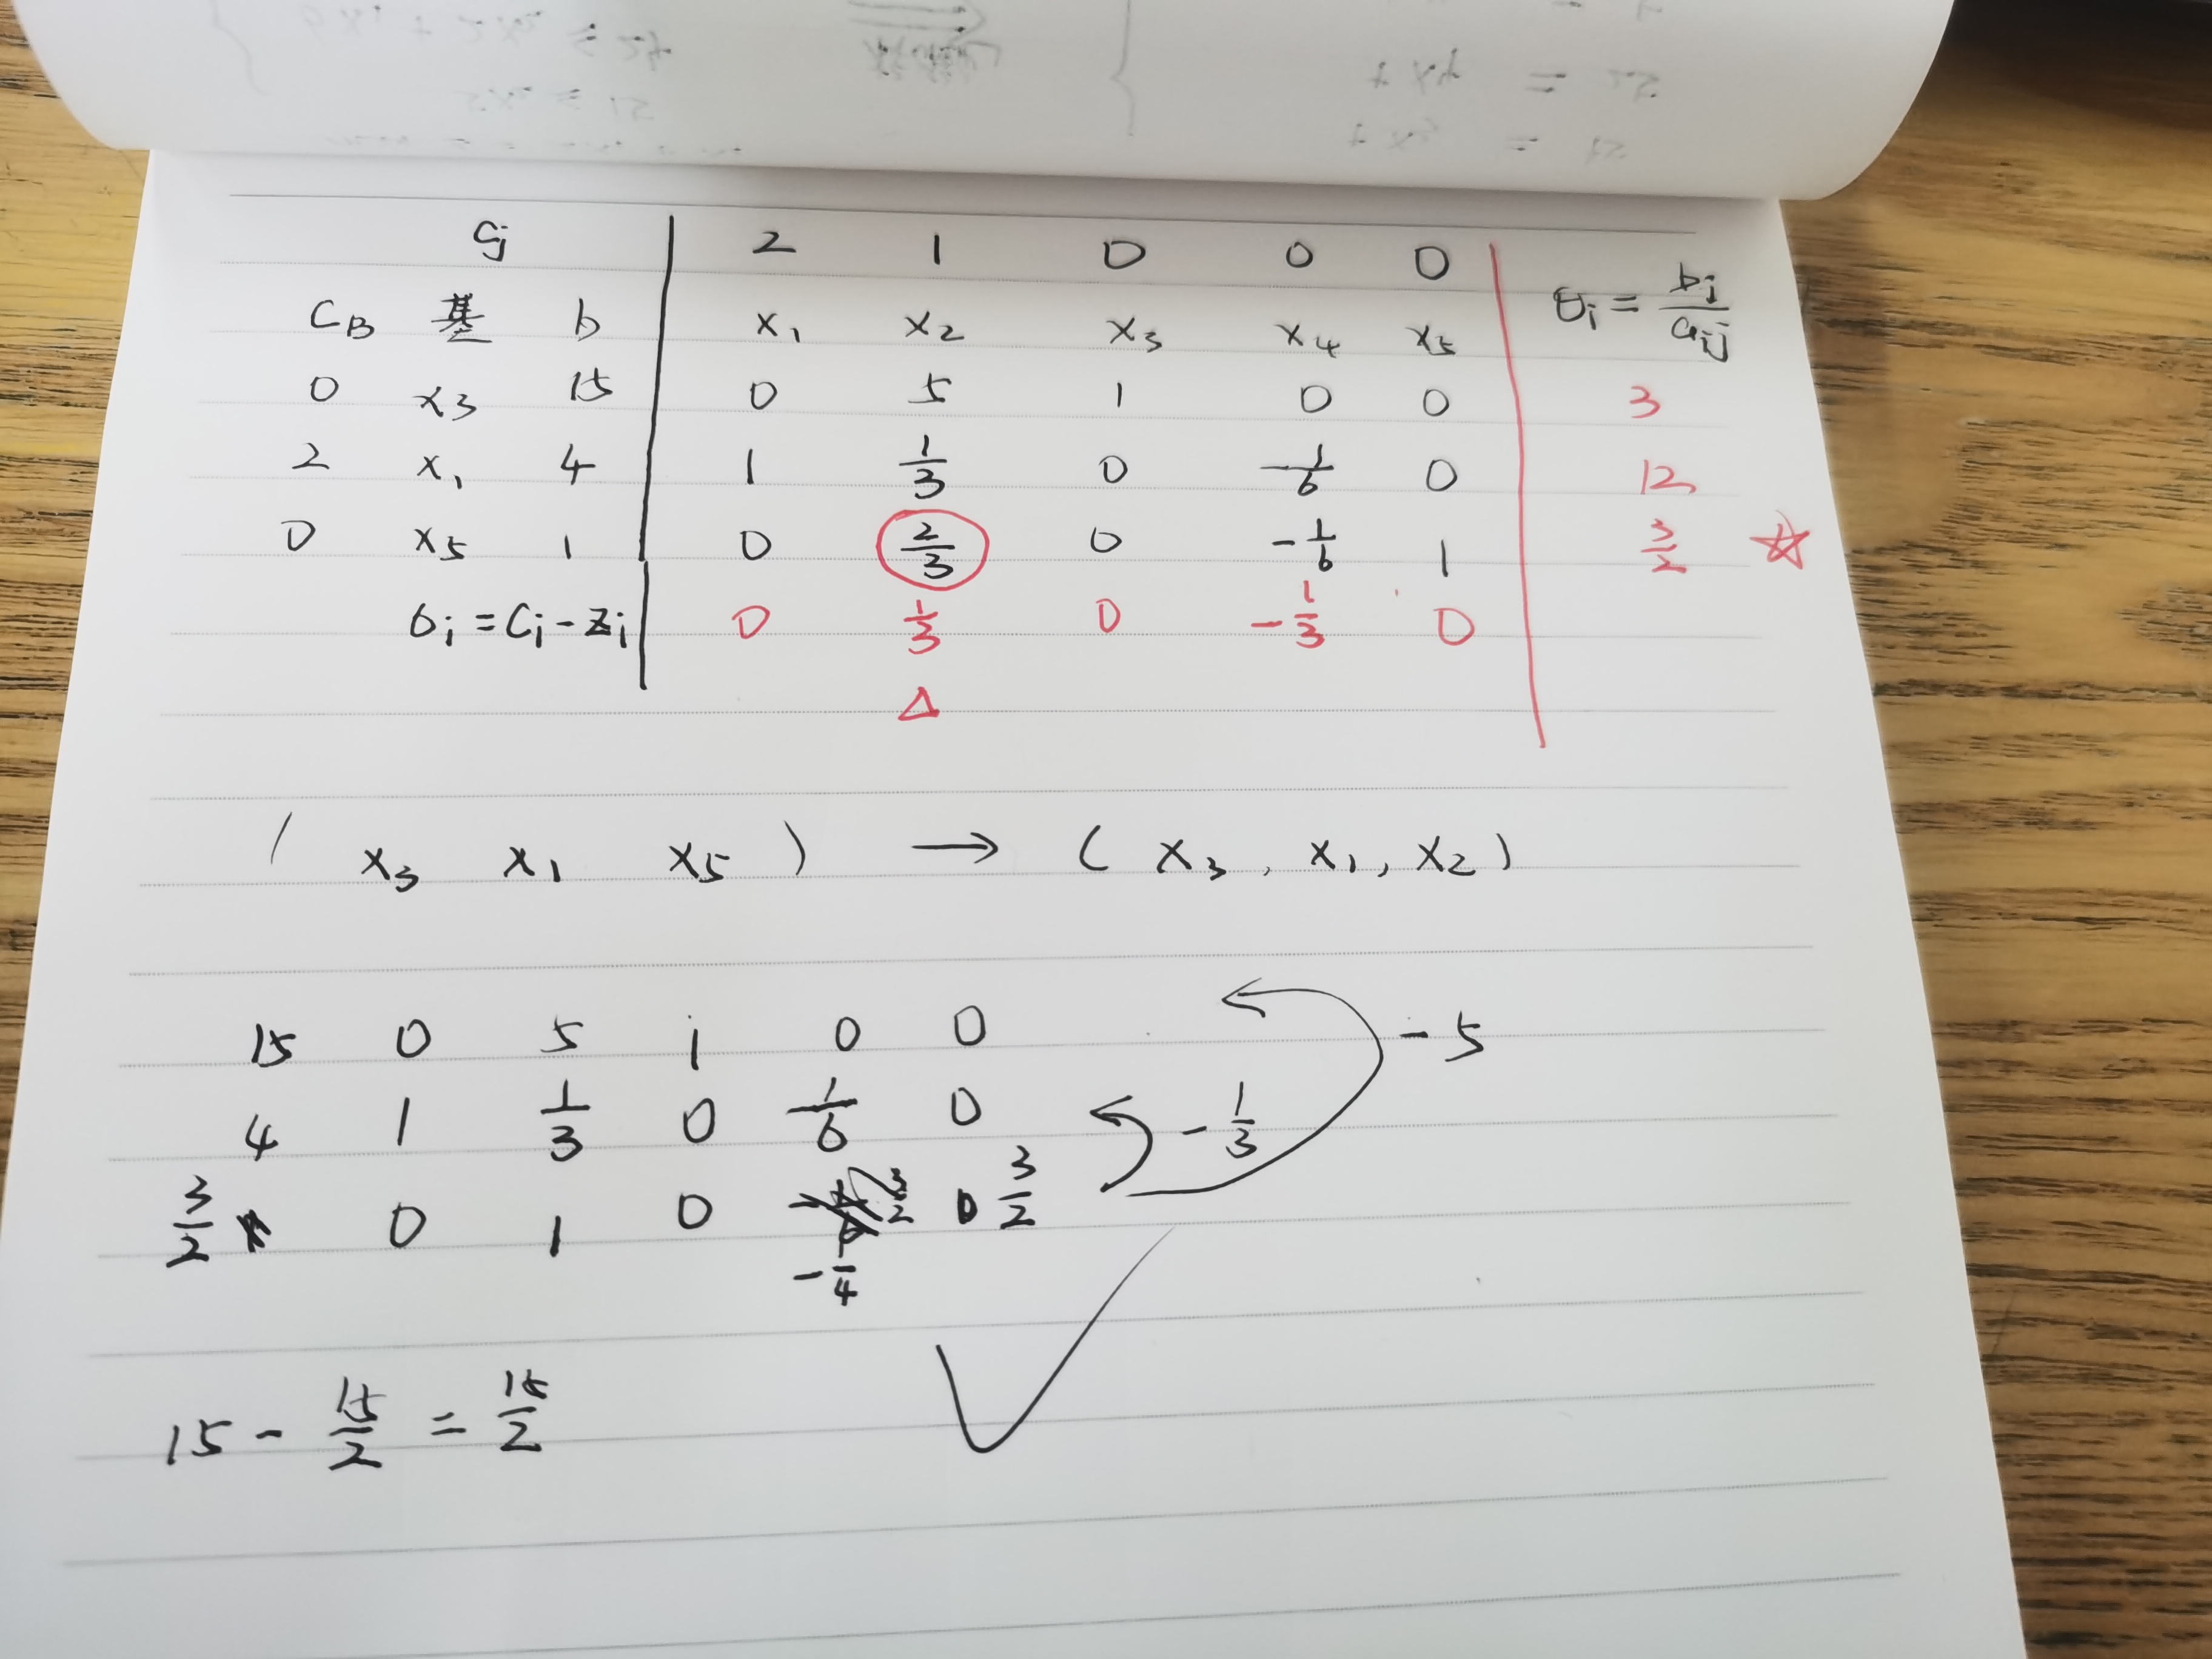 cj 2 1 0 0 0 θi = bj/aij
CB 基 b x1 x2 x3 x4 x5
0 x3 15 0 5 1 0 0 3
2 x1 4 1 1/3 0 1/6 0 12
0 x5 1 0 2/3 0 -1/6 1 3/2 ☆
σi = Ci - zi 0 1/3 0 -1/3 0
Δ
( x3 x1 x5 ) → ( x3, x1, x2 )
15 0 5 1 0 0 -5
4 1 1/3 0 1/6 0 -1/3
3/2 0 1 0 -1/4 3/2
15 - 15/2 = 15/2